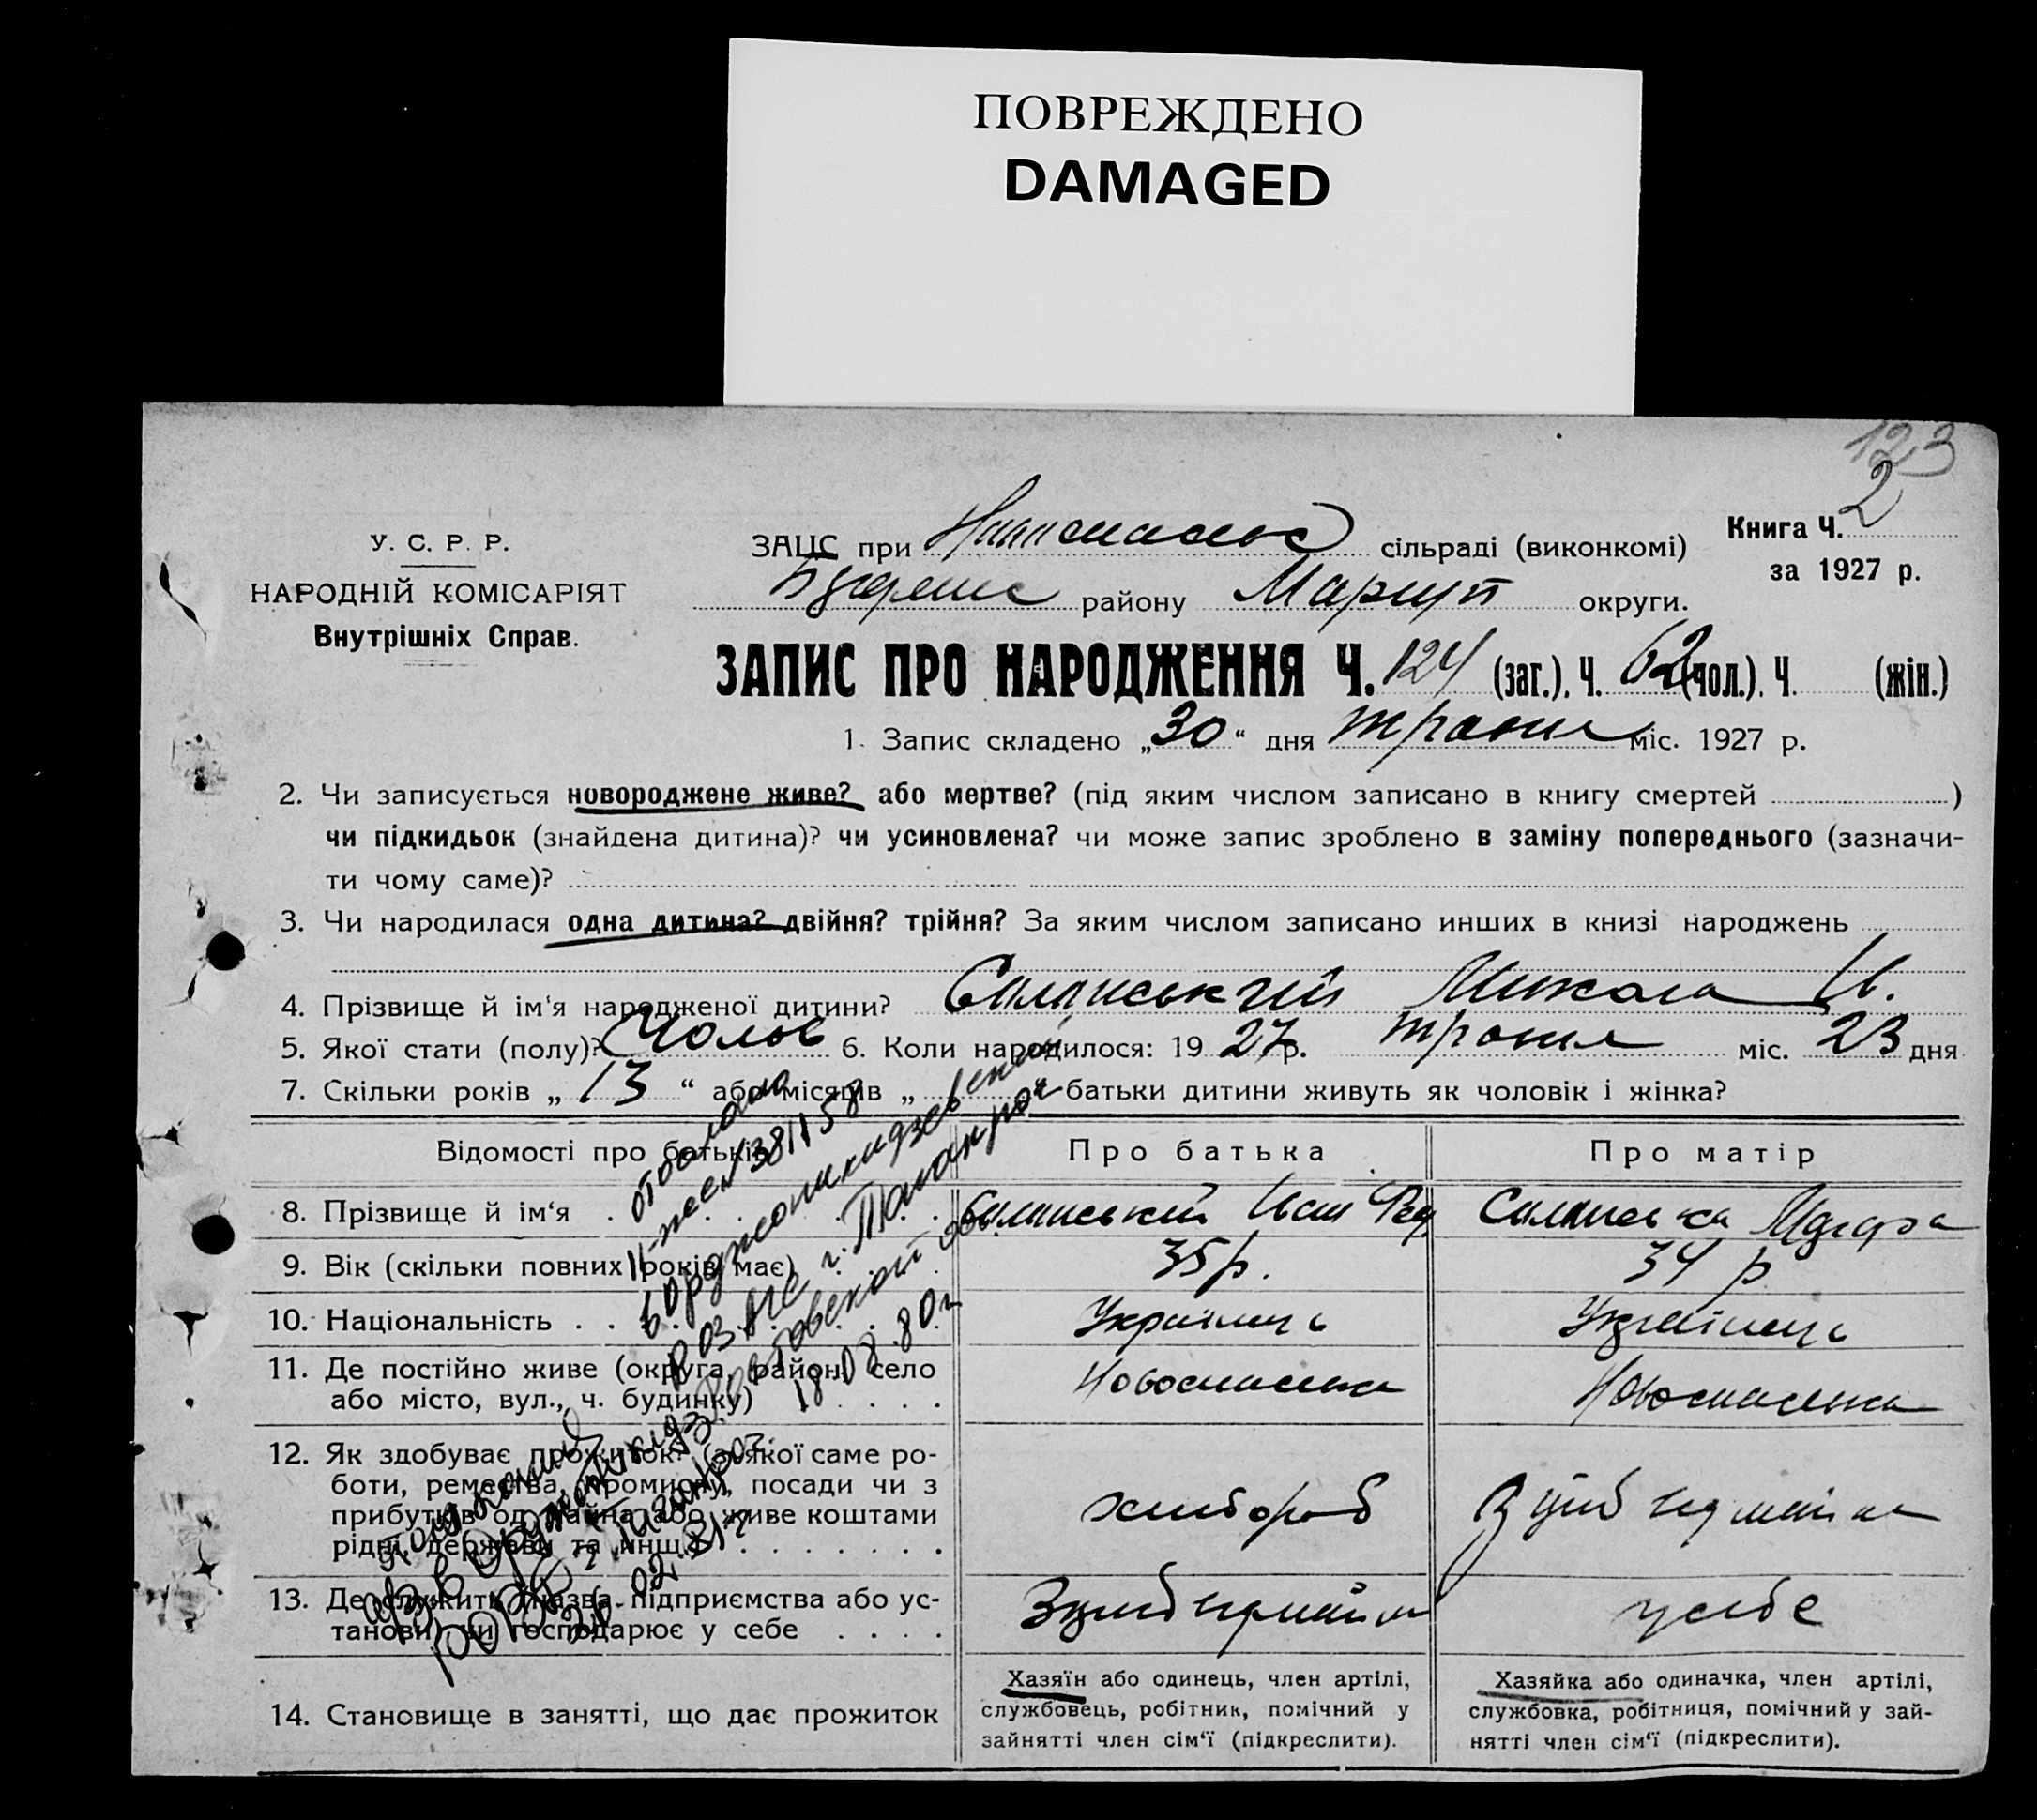 ПОВРЕЖДЕНО
DAMAGED
123
У. С. Р. Р.
НАРОДНІЙ КОМІСАРІЯТ
Внутрішніх Справ.
ЗАЦС при сільраді (виконкомі)
Книга Ч. 2
за 1927 р.
району Маріуп округи.
ЗАПИС ПРО НАРОДЖЕННЯ Ч. 124 (заг.). Ч. 62 (чол.). Ч. (жін.)
1. Запис складено „30“ дня травня міс. 1927 р.
2. Чи записується новороджене живе? або мертве? (під яким числом записано в книгу смертей )
чи підкидьок (знайдена дитина)? чи усиновлена? чи може запис зроблено в заміну попереднього (зазначи-
ти чому саме)?
3. Чи народилася одна дитина? двійня? трійня? За яким числом записано инших в книзі народжень
4. Прізвище й ім‘я народженої дитини? Силинський Микола И.
5. Якої стати (полу)? Чолов 6. Коли народилося: 19 27 р. травня міс. 23 дня
7. Скільки років „ 13 “ або місяців „ “ батьки дитини живуть як чоловік і жінка?
Відомості про батьків
Про батька
Про матір
8. Прізвище й ім‘я
Силинський Иван Фед
Силинська
9. Вік (скільки повних років має)
35 р.
34 р
10. Національність
Українець
Українець
11. Де постійно живе (округа, район, село
або місто, вул., ч. будинку)
Новоспасівка
Новоспасівка
12. Як здобуває прожиток? (з якої саме ро-
боти, ремества, промислу, посади чи з
прибутків од майна або живе коштами
рідні, держави та инш.)
хлібороб
13. Де служить (назва підприємства або ус-
танови) чи господарює у себе
у себе
14. Становище в занятті, що дає прожиток
Хазяїн або одинець, член артілі,
службовець, робітник, помічний у
зайнятті член сім‘ї (підкреслити).
Хазяйка або одиначка, член артілі,
службовка, робітниця, помічний у зай-
нятті член сім‘ї (підкреслити).
в Орджоникидзевский
РОЗАГС г. Таганрог
Ростовской обл.
18.08.80г